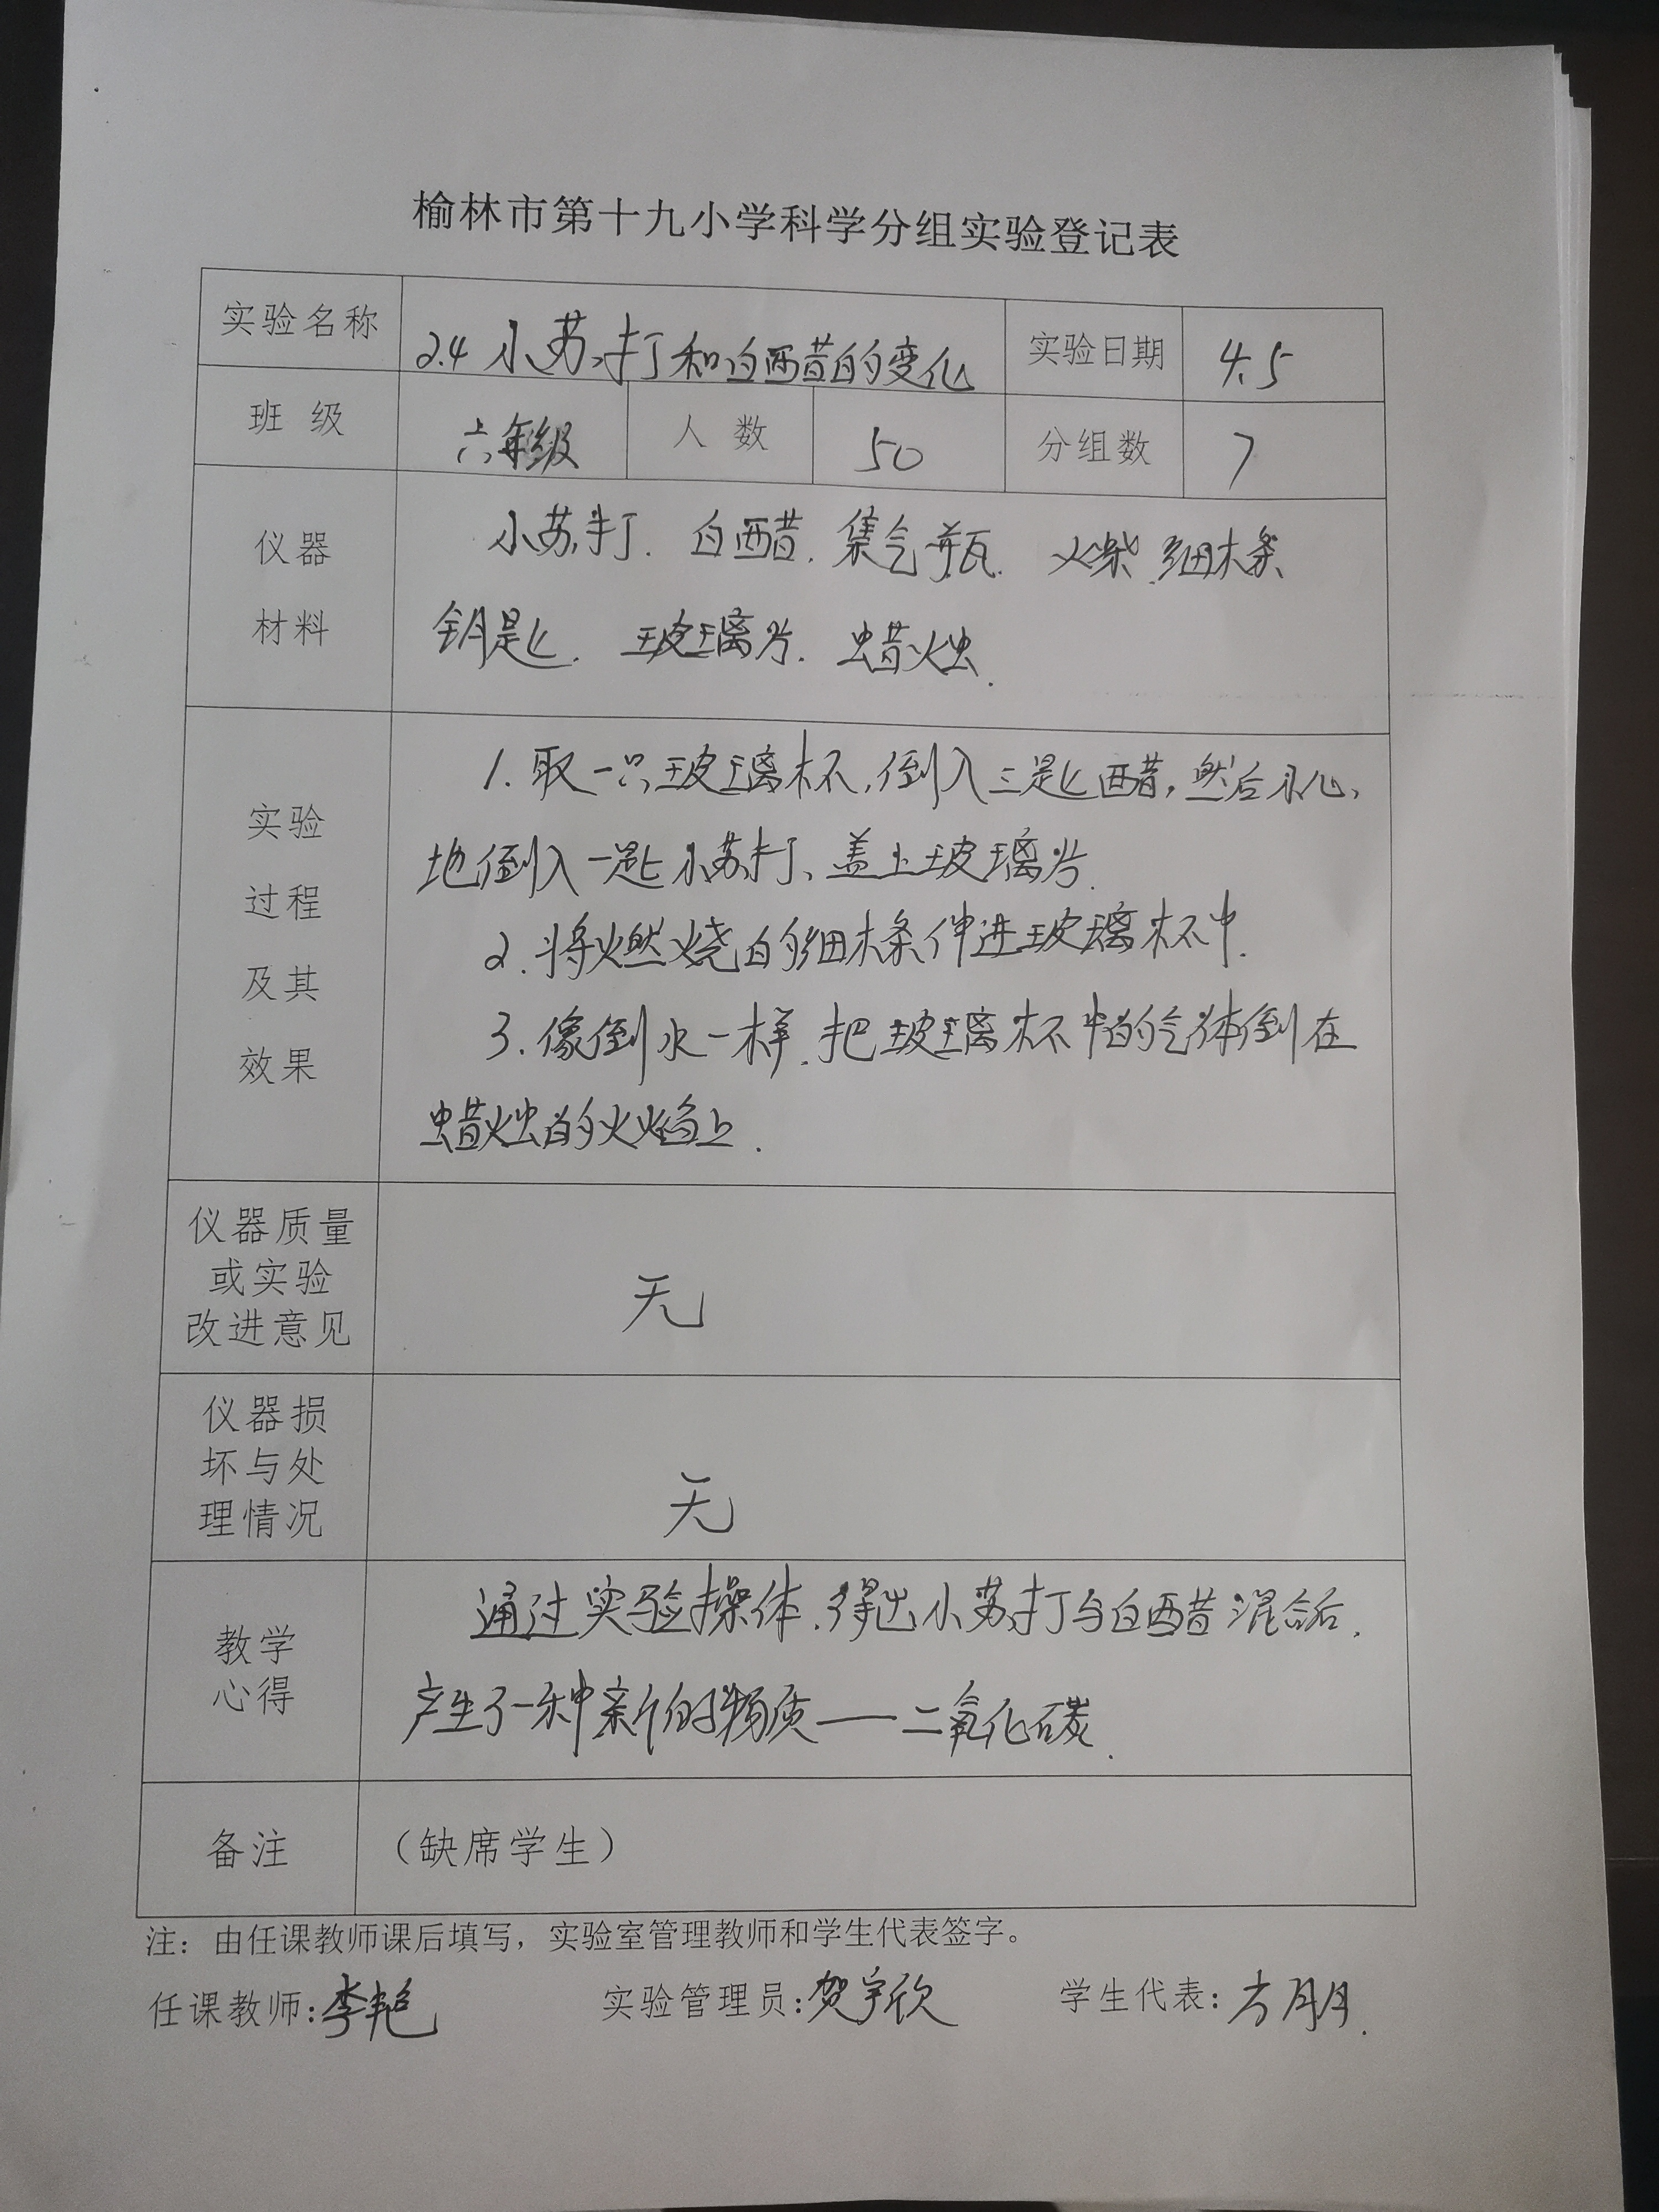 榆林市第十九小学科学分组实验登记表
实验名称 2.4 小苏打和白醋的变化 实验日期 4.5
班 级 六年级 人 数 50 分组数 7
仪器
材料
小苏打. 白醋. 集气瓶. 火柴. 细木条
钥匙. 玻璃片. 蜡烛.
实验
过程
及其
效果
1. 取一只玻璃杯, 倒入三匙醋, 然后小心、
地倒入一匙小苏打、盖上玻璃片.
2. 将燃烧的细木条伸进玻璃杯中.
3. 像倒水一样. 把玻璃杯中的气体倒在
蜡烛的火焰上.
仪器质量
或实验
改进意见
无
仪器损
坏与处
理情况
无
教学
心得
通过实验操体. 得出小苏打与白醋混合后.
产生了一种新的物质——二氧化碳.
备注 （缺席学生）
注：由任课教师课后填写，实验室管理教师和学生代表签字。
任课教师: 李艳 实验管理员: 贺宇欣 学生代表: 方朋.